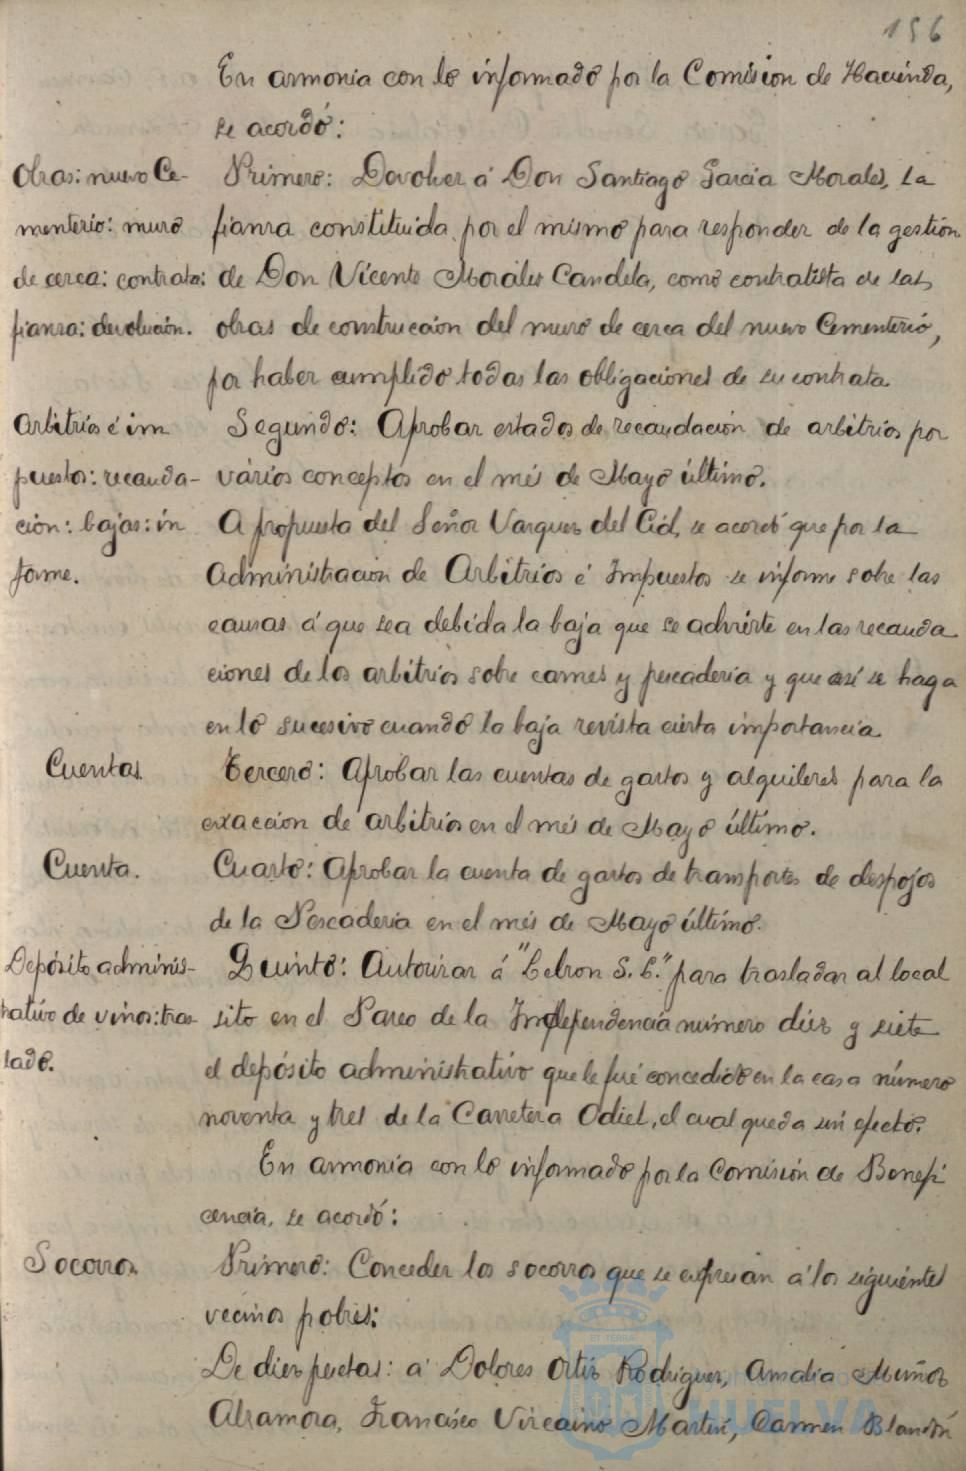 156
En armonia con lo informado por la Comision de Hacienda,
se acordó:
Obras: nuevo Ce-
menterio: muro
de cerca: contrata:
fianza: devolución.
Primero: Devolver á Don Santiago Garcia Morales, la
fianza constituida por el mismo para responder de la gestión
de Don Vicente Morales Candela, como contratista de las
obras de construccion del muro de cerca del nuevo Cementerio,
por haber cumplido todas las obligaciones de su contrata.
Arbitrios é im
puestos: recauda-
ción: bajas: in
forme.
Segundo: Aprobar estados de recaudación de arbitrios por
varios conceptos en el més de Mayo último.
A propuesta del Señor Vazquez del Cid, se acordó que por la
Administracion de Arbitrios é Impuestos se informe sobre las
causas á que sea debida la baja que se advierte en las recauda
ciones de los arbitrios sobre carnes y pescaderia y que asi se haga
en lo sucesivo cuando la baja revista cierta importancia.
Cuentas
Tercero: Aprobar las cuentas de gastos y alquileres para la
exaccion de arbitrios en el més de Mayo último.
Cuenta.
Cuarto: Aprobar la cuenta de gastos de transportes de despojos
de la Pescaderia en el més de Mayo último.
Depósito adminis-
trativo de vinos: tras
lado.
Quinto: Autorizar á "Lebron S. L." para trasladar al local
sito en el Paseo de la Independencia número diez y siete
el depósito administrativo que le fué concedido en la casa número
noventa y tres de la Carretera Odiel, el cual queda sin efecto.
En armonia con lo informado por la Comisión de Benefi
cencia, se acordó:
Socorros
Primero: Conceder los socorros que se expresan á los siguientes
vecinos pobres:
De diez pesetas: á Dolores Ortiz Rodriguez, Amalia Muñoz
Alzamora, Francisco Vizcaino Martin, Carmen Blandón
ET TERRÆ
HUELVA